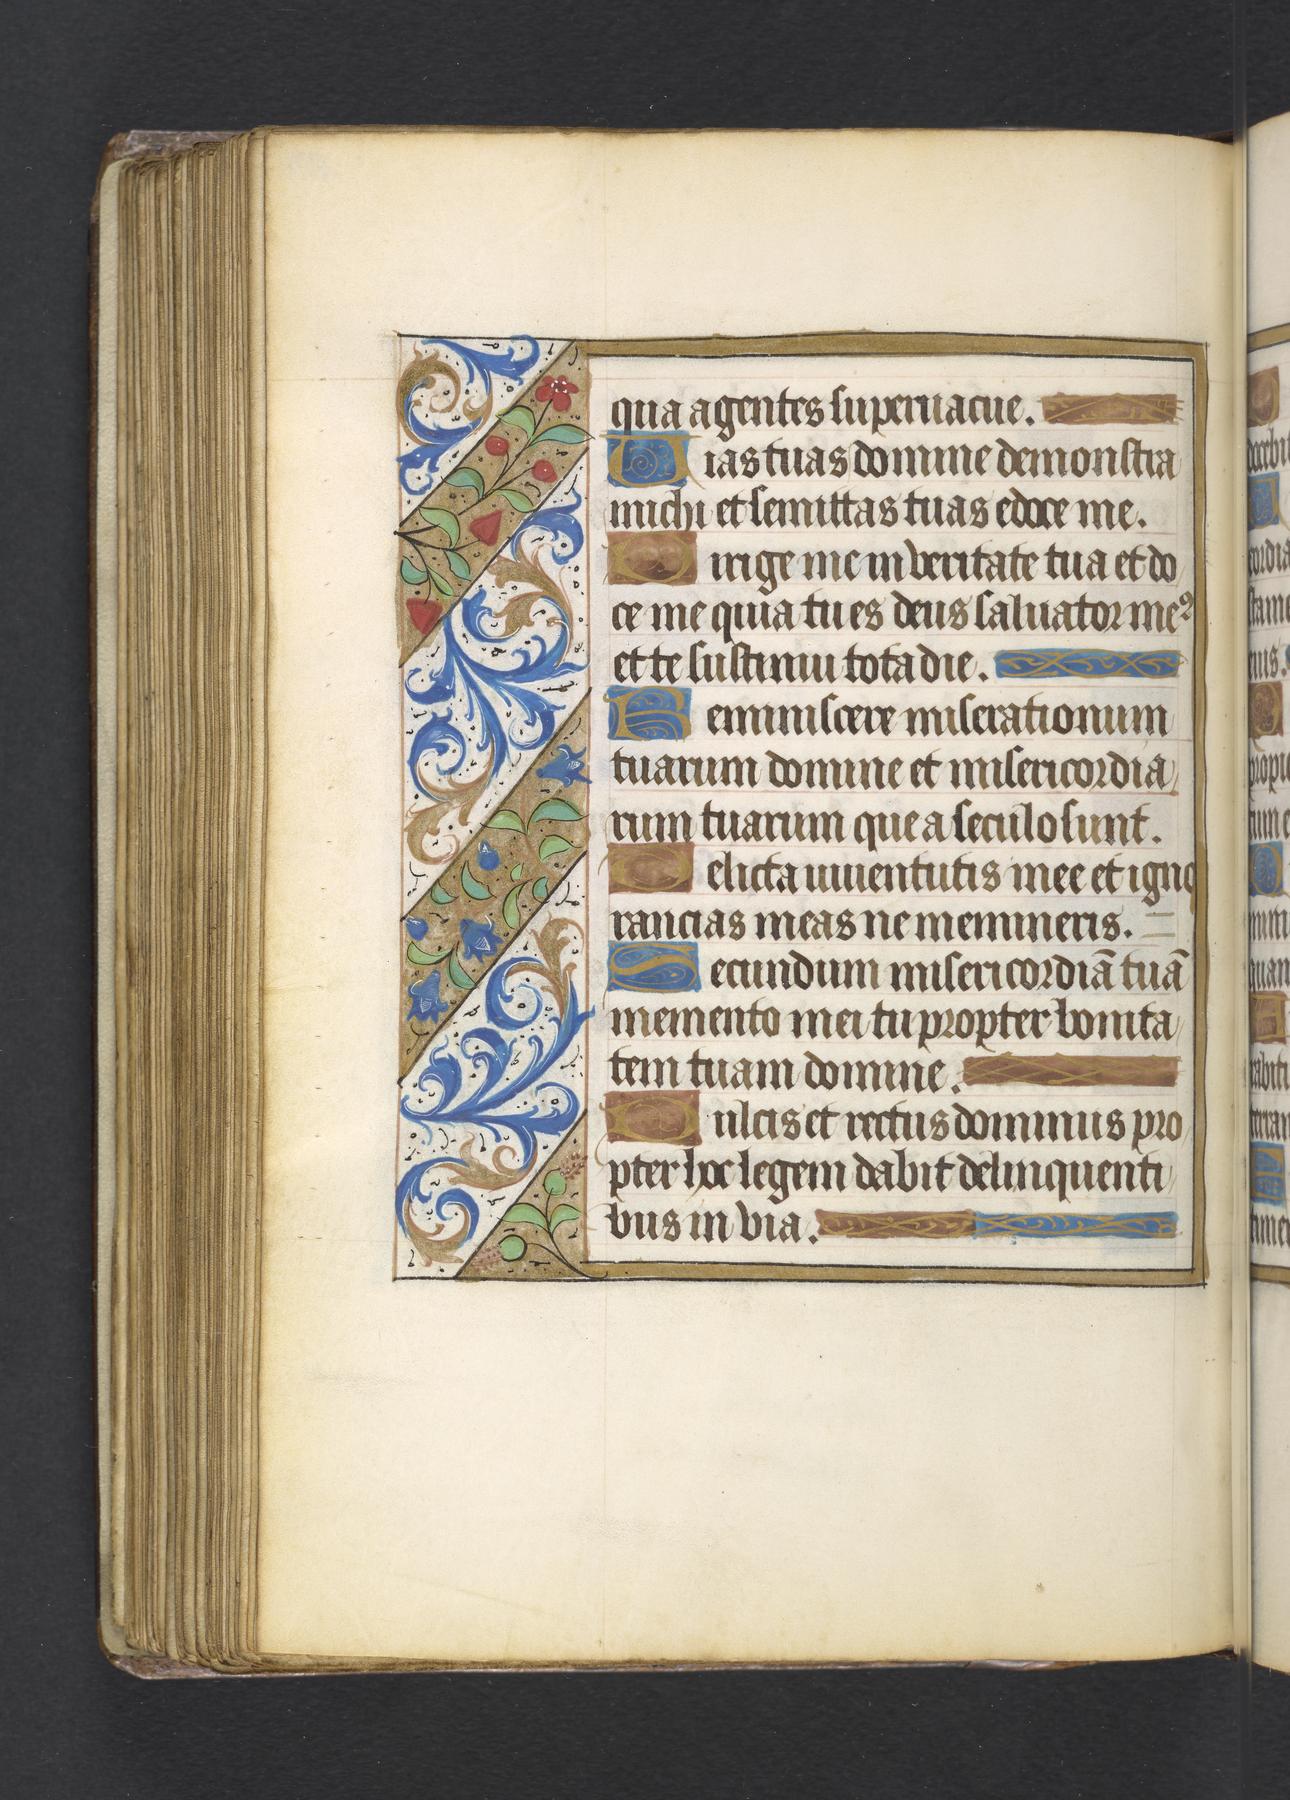 qua agentes superuacue.
Vias tuas domine demonstra
michi et semittas tuas edoce me.
Dirige me in veritate tua et do
ce me quia tu es deus saluator meꝰ
et te sustinui tota die.
Reminiscere miserationum
tuarum domine et misericordia
rum tuarum que a seculo sunt.
Delicta iuuentutis mee et igno
rancias meas ne memineris.
Secundum misericordiā tuā
memento mei tu propter bonita
tem tuam domine.
Dulcis et rectus dominus pro
pter hoc legem dabit delinquenti
bus in via.